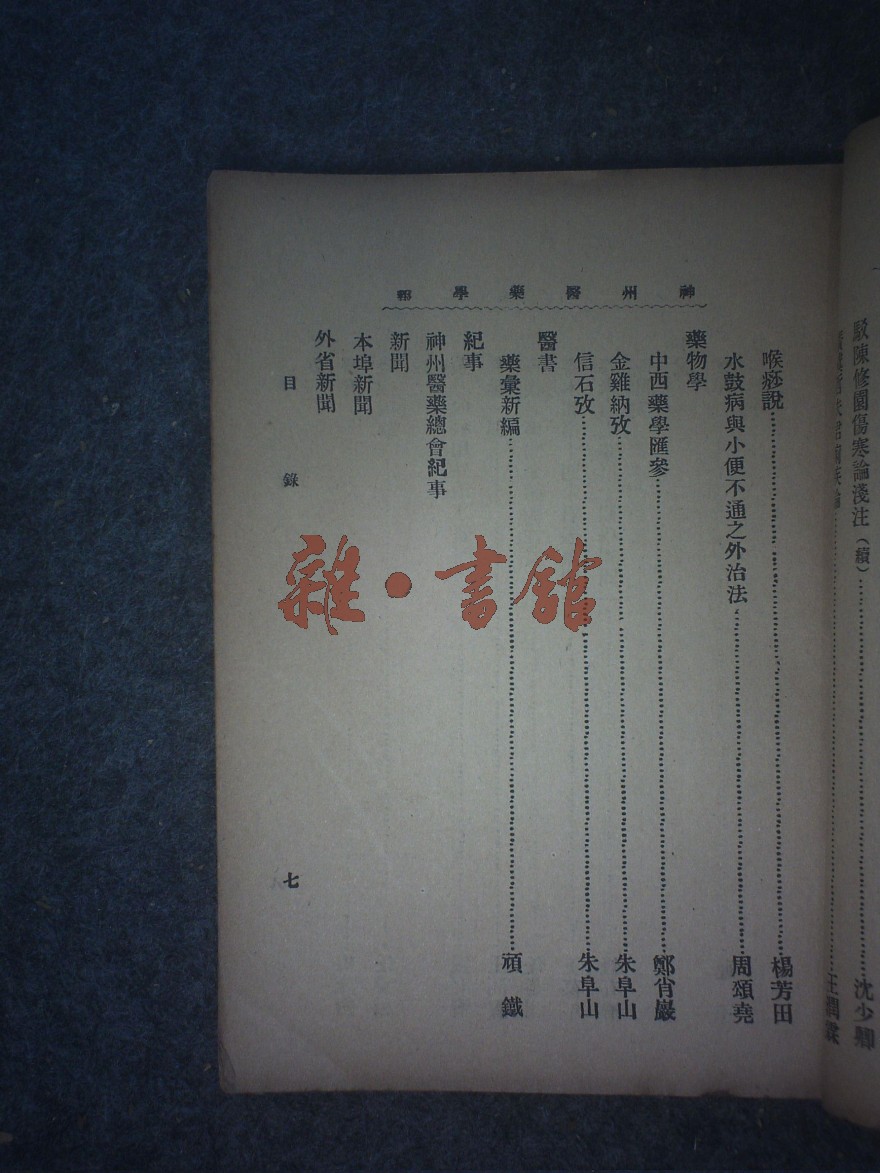 駁陳修園傷寒論淺注（續）………沈少卿
神州醫藥學報
喉痧說………楊芳田
水鼓病與小便不通之外治法………周頌堯
藥物學
中西藥學匯參………鄭肖巖
金雞納攷………朱阜山
信石攷………朱阜山
醫書
藥彙新編………頑鐵
紀事
神州醫藥總會紀事
新聞
本埠新聞
外省新聞
目錄 七
雜·書館